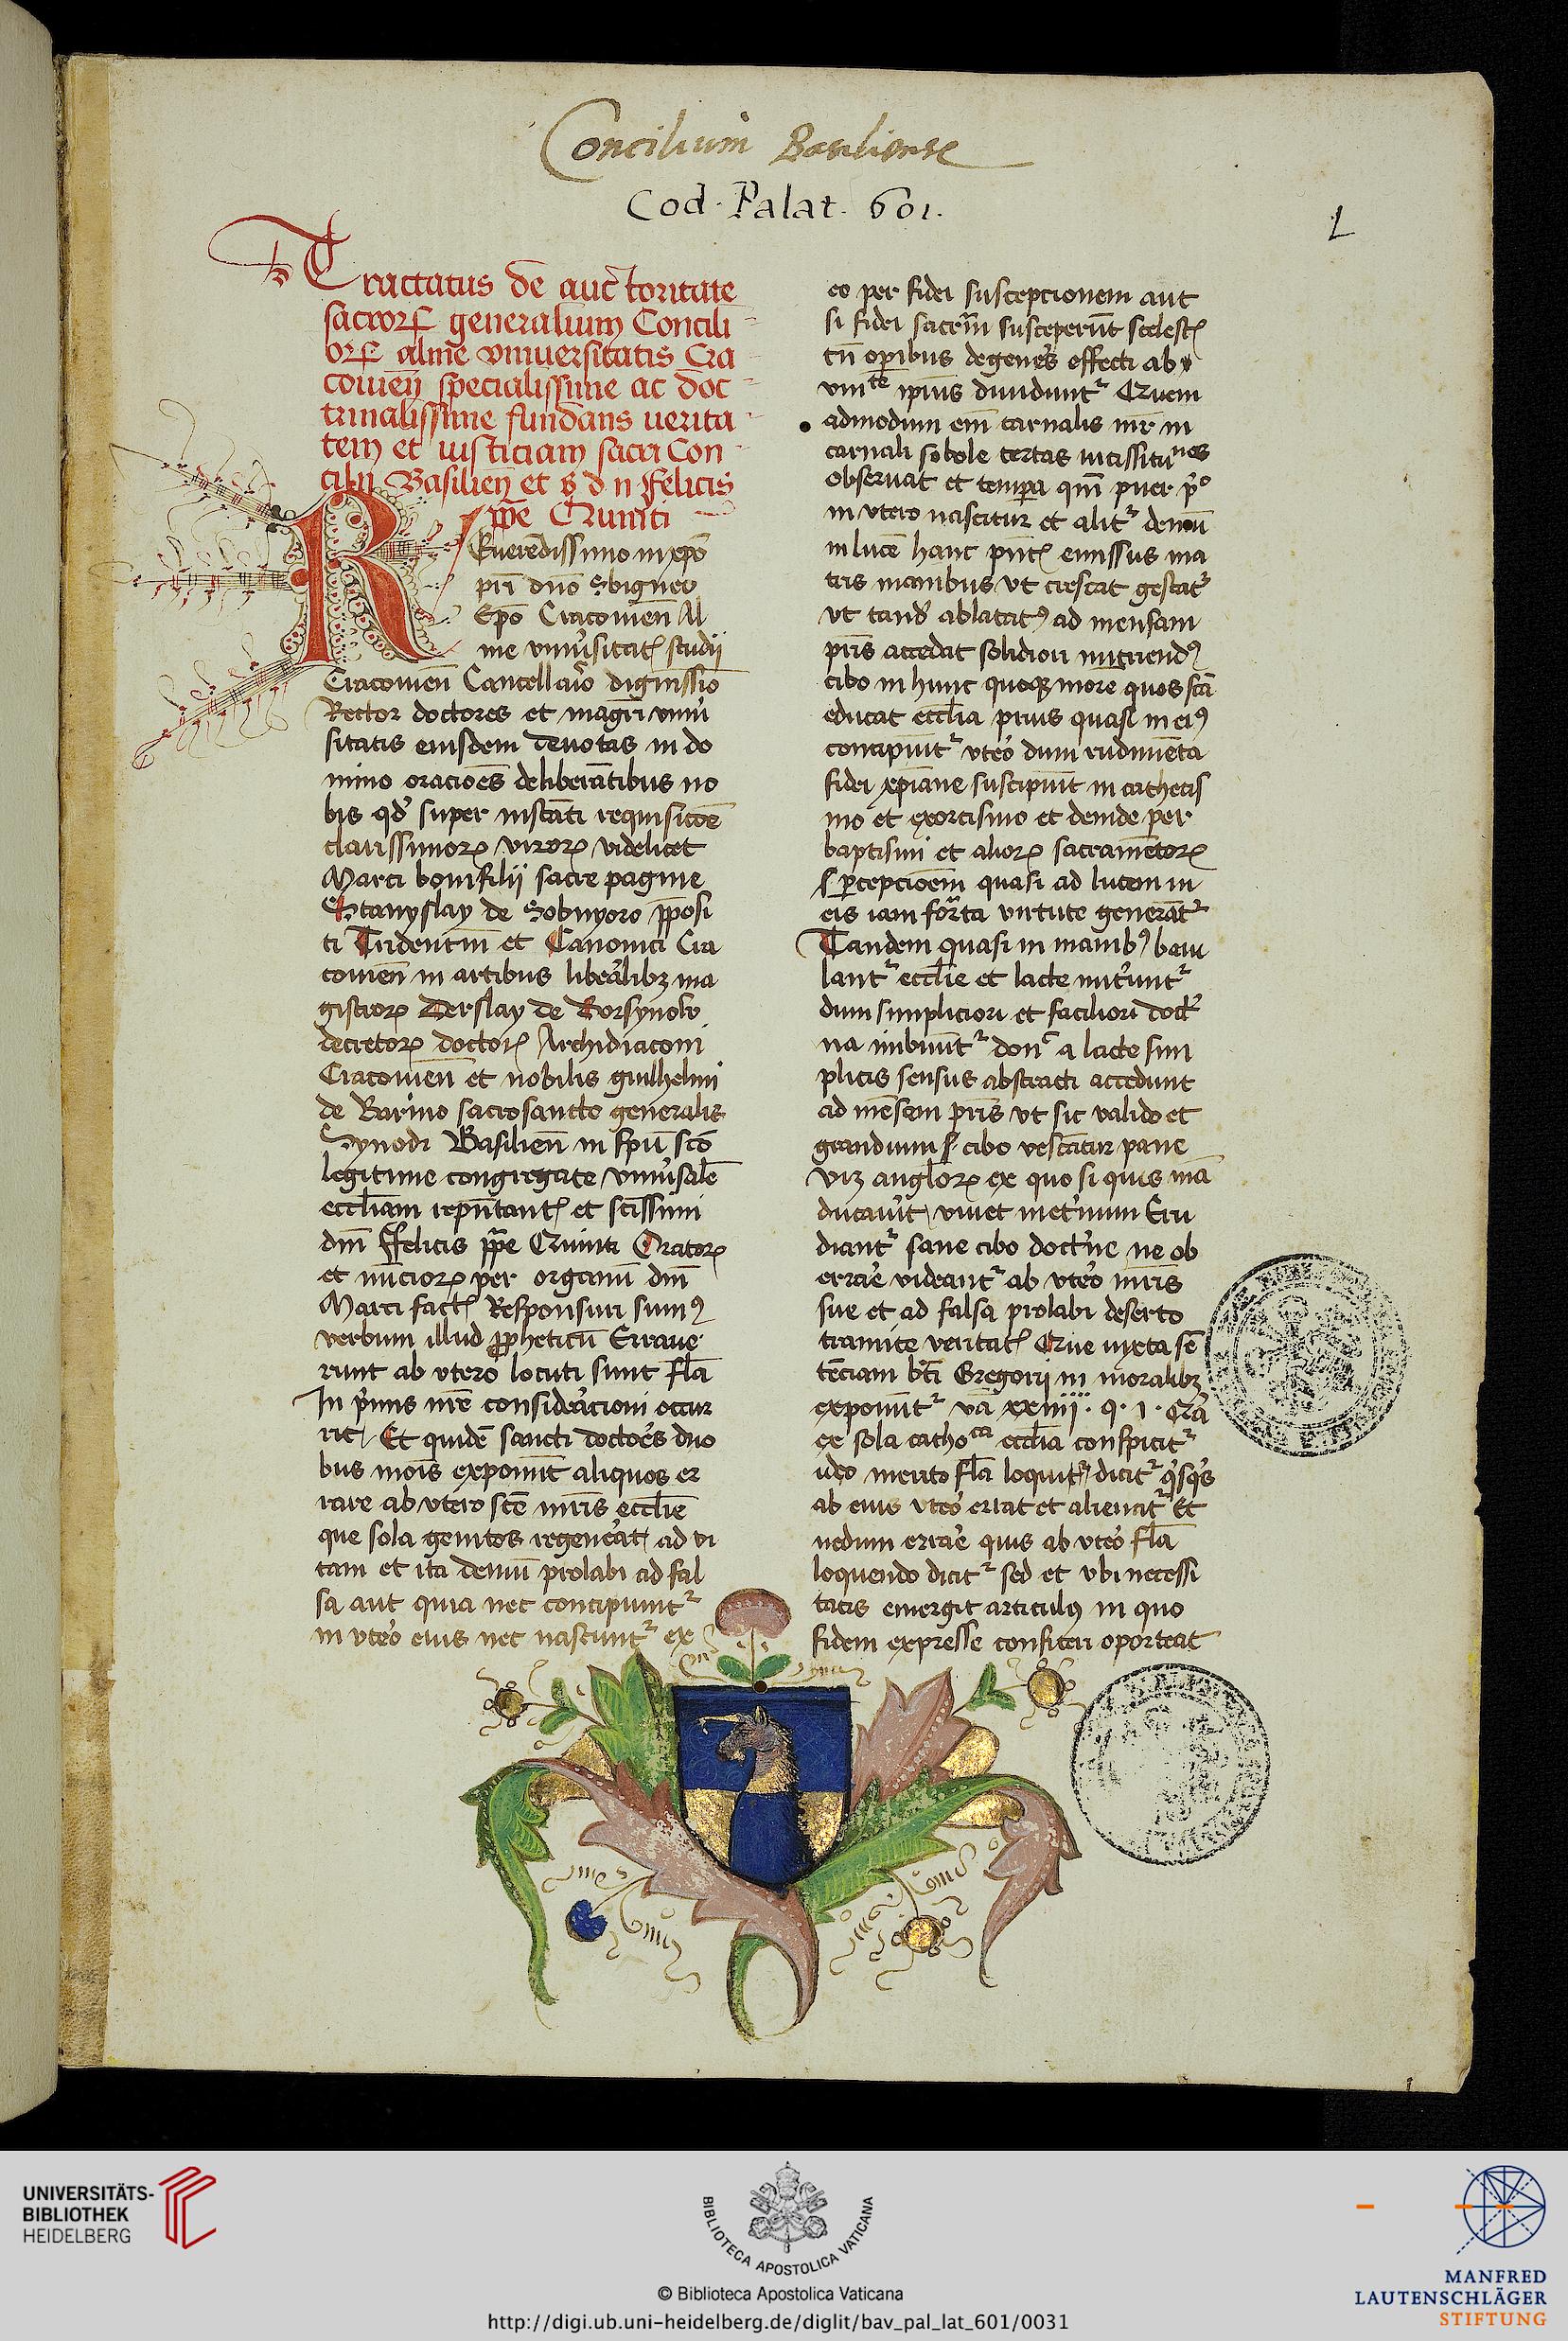 Concilium Basiliense
Cod. Palat. 601.
1
Tractatus de auctoritate
sacrorꝝ generalium Concili
orꝝ alme vniuersitatis Cra
couien̄ specialissime ac doc
trinalissime fundans uerita
tem et iusticiam sacri Con
cilij Basilien̄ et s d n Felicis
pp̄e Quinti
Reuerēdissimo in xp̄o
pr̄i dn̄o Sbigneo
Ep̄o Cracouien̄ Al
me vniũsitatꝭ studij
Cracouien̄ Cancellar̃o dignissīo
Rector doctores et magr̄i vniũ
sitatis eiusdem deuotas in do
mino oracōes deliberātibus no
bis qd̓ super instāti requisicōe
clarissimorꝝ virorꝝ videlicet
Marci bonifilij sacre pagine
Stanyslay de Sobnyoro pp̄osi
ti Tridentin̄ et Canonici Cra
couien̄ in artibus liberalibꝫ ma
gistrorꝝ Derslay de Borsynolv
decretorꝝ doctorꝭ Archidiaconi
Cracouien̄ et nobilis guilhelmi
de Barino sacrosancte generalis
Synodi Basilien̄ in spū scō
legitime congregate vniũsalē
eccl̄iam rep̄ntantꝭ et sctissimi
dn̄i Ffelicis pp̄e Quinti Oratorꝝ
et nūciorꝝ per organū dn̄i
Marci factꝭ Responsuri sumꝰ
verbum illud ꝓpheticū Erraue
runt ab vtero locuti sunt fl̄a
In p̓mis nr̄e consideracioni occur
rit Et quidē sancti doctoẽs duo
bus mōis exponūt aliquos er
rare ab vtero scē mr̄is eccl̄ie
que sola genitos regenẽat ad vi
tam et ita demū prolabi ad fal
sa aut quia nec concipiuntᷣ
in vteo eius nec nascuntᷣ ex
eo per fidei suscepcionem aut
si fidei sacr̄m susceperūt scelestꝭ
tn̄ oꝑibus degenẽs effecti ab
vnitᵗᵉ ip̄ius diuiduntᷣ Quem
admodum em̄ carnalis mr̄ in
carnali sobole certas vicissituⁿᵉˢ
obseruat et tempa qm̄ puer pᵒ
in vtero nascitur et alitᷣ demū
in lucē hanc pn̄tꝭ emissus ma
tris manibus vt crescat gestatᷣ
vt tand̓ ablatatꝰ ad mensam
pr̄is accedat solidiori nutriendꝰ
cibo in hunc quoqꝫ more quos scā
educat eccl̄ia prius quasi in eiꝰ
concipiūtᷣ vteo dum rudimēta
fidei xp̄iane suscipiūt in cathecis
mo et exorcismo et deinde per
baptismi et aliorꝝ sacramētorꝝ
ꝑcepcioēm quasi ad lucem in
eis iam for̄ta virtute generātᷣ
Tandem quasi in manibꝰ baiu
lantᷣ eccl̄ie et lacte nutũntᷣ
dum simpliciori et faciliori doct̓
na imbuūtᷣ donᶜ a lacte sim
plicis sensus abstracti accedunt
ad mēsam pr̄is vt sic valido et
grandium cibo vescātur pane
viꝫ angl̄orꝝ ex quo si quis mā
ducaũit viuet inet̓num Eru
diantᷣ sane cibo doct̓ne ne ob
errare videantᷣ ab vteo mr̄is
sue et ad falsa prolabi deserto
tramite veritatꝭ Que iuxta sē
tēciam bt̄i Gregorij in moralibꝫ
exponūtᷣ vā xxiiij. q. i. Qr̃a
ex sola cathoᶜᵃ eccl̄ia conspicitᷣ
ideo merito fl̄a loquitᷣ dicitᷣ q̓sq̓s
ab eius vteo errat et alienatᷣ Et
nedum errare quis ab vteo fl̄a
loquendo dicitᷣ sed et vbi necessi
tatis emergit articulꝰ in quo
fidem expresse confiteri oporteat
UNIVERSITÄTS-
BIBLIOTHEK
HEIDELBERG
BIBLIOTECA APOSTOLICA VATICANA
© Biblioteca Apostolica Vaticana
http://digi.ub.uni-heidelberg.de/diglit/bav_pal_lat_601/0031
MANFRED
LAUTENSCHLÄGER
STIFTUNG